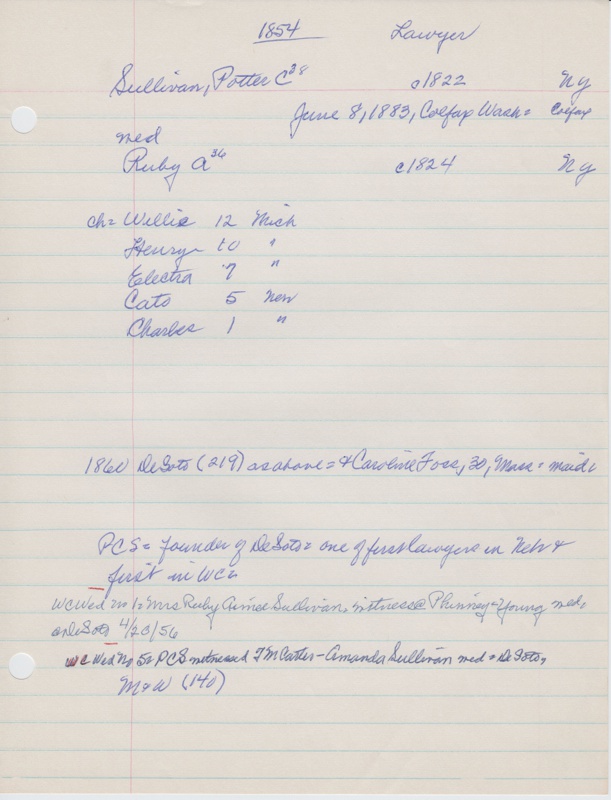 1854 Lawyer
Sullivan, Potter C 38 c1822 Ny
June 8, 1883, Colfax Wash = Colfax
med
Ruby A 36 c1824 Ny
ch= Willie 12 Mich
Henry 10 "
Electra 7 "
Cato 5 Neb
Charles 1 "
1860 DeSoto (219) as above = & Caroline Foss, 30, Mass = maid.
PCS = founder of DeSoto = one of first lawyers in Neb &
first in WC=
WC Wed no 1= Mrs Ruby Aimee Sullivan, witness @ Phinney = Young med,
@ DeSoto 4/20/56
WC Wed No 5= PCS witnessed T M Carter - Amanda Sullivan med = DeSoto,
M & W (140)